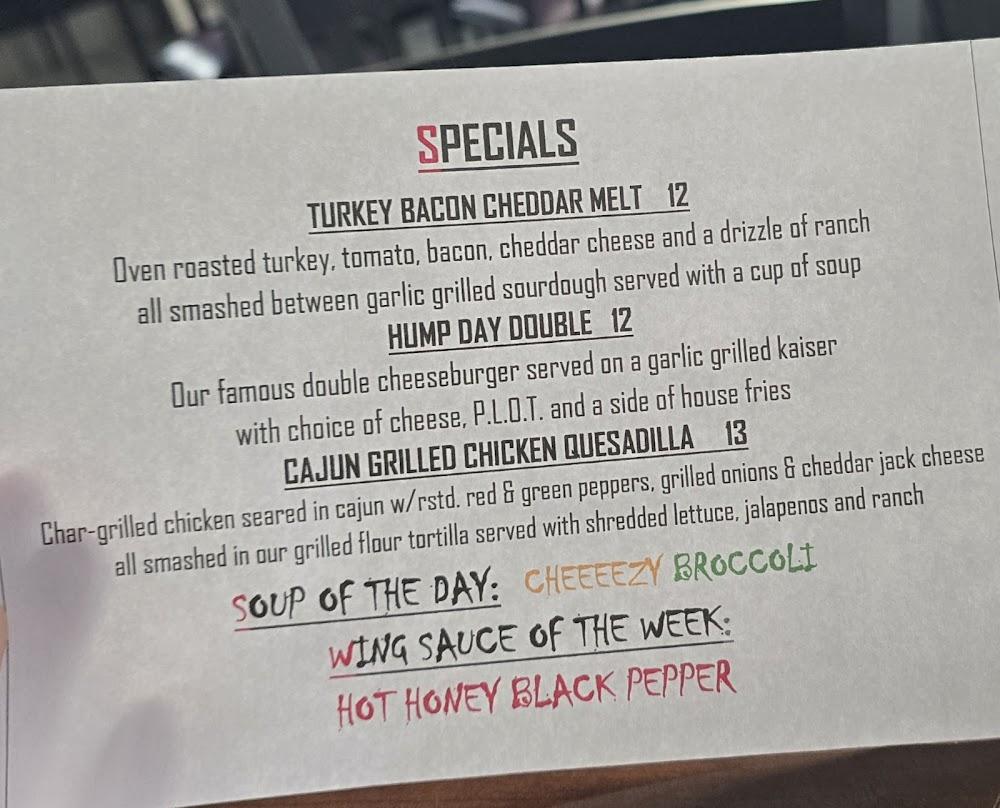 SPECIALS
TURKEY BACON CHEDDAR MELT 12
Oven roasted turkey, tomato, bacon, cheddar cheese and a drizzle of ranch
all smashed between garlic grilled sourdough served with a cup of soup
HUMP DAY DOUBLE 12
Our famous double cheeseburger served on a garlic grilled kaiser
with choice of cheese, P.L.O.T. and a side of house fries
CAJUN GRILLED CHICKEN QUESADILLA 13
Char-grilled chicken seared in cajun w/rstd. red & green peppers, grilled onions & cheddar jack cheese
all smashed in our grilled flour tortilla served with shredded lettuce, jalapenos and ranch
SOUP OF THE DAY: CHEEEEZY BROCCOLI
WING SAUCE OF THE WEEK:
HOT HONEY BLACK PEPPER